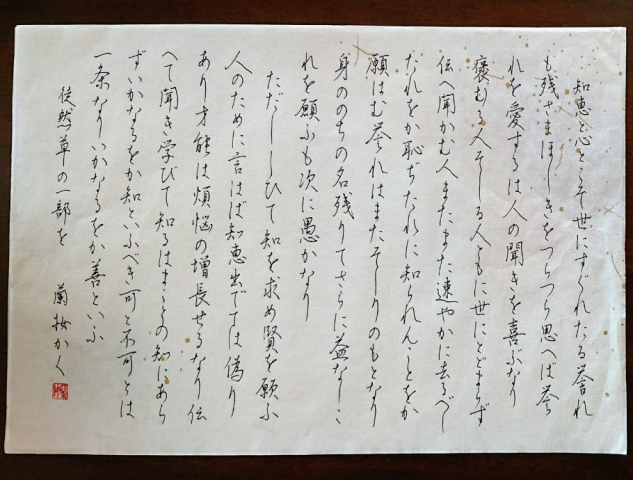 知恵と心とこそ世にすぐれたる誉れ
も残さまほしきをつらつら思へば誉
れを愛するは人の聞きを喜ぶなり
褒むる人そしる人ともに世にとどまらず
伝へ聞かむ人またまた速やかに去るべし
たれをか恥ぢたれに知られんことをか
願はむ誉れはまたそしりのもとなり
身ののちの名残りてさらに益なしこ
れを願ふも次に愚かなり
ただししひて知を求め賢を願ふ
人のために言はば知恵出でては偽り
あり才能は煩悩の増長せるなり伝
へて聞き学びて知るはまことの知にあら
ずいかなるをか知といふべき可と不可とは
一条なりいかなるをか善といふ
徒然草の一部を
蘭 かく